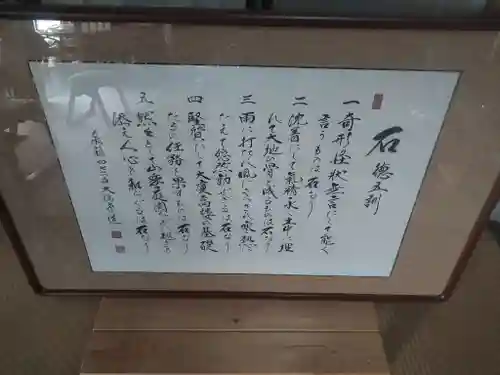 石德五訓
一 奇形怪状無言にして能く
言うものは石なり
二 沈着にして氣精永く土中に埋
れて大地の骨と成るものは石なり
三 雨に打たれ風にさらされ寒熱に
たえて悠然動ぜざるは石なり
四 堅實にして大廈高楼の基礎
たるの任務を果すものは石なり
五 黙々として山嶽庭園に趣を
添え人心を和らぐるは石なり